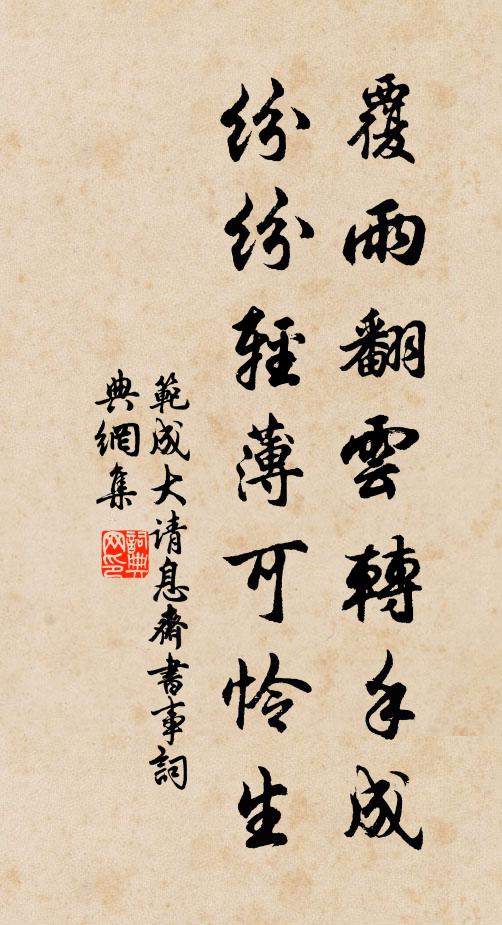 覆雨翻雲轉手成
紛紛輕薄可怜生
範成大请息齋書事詞
典網集
詞典网印